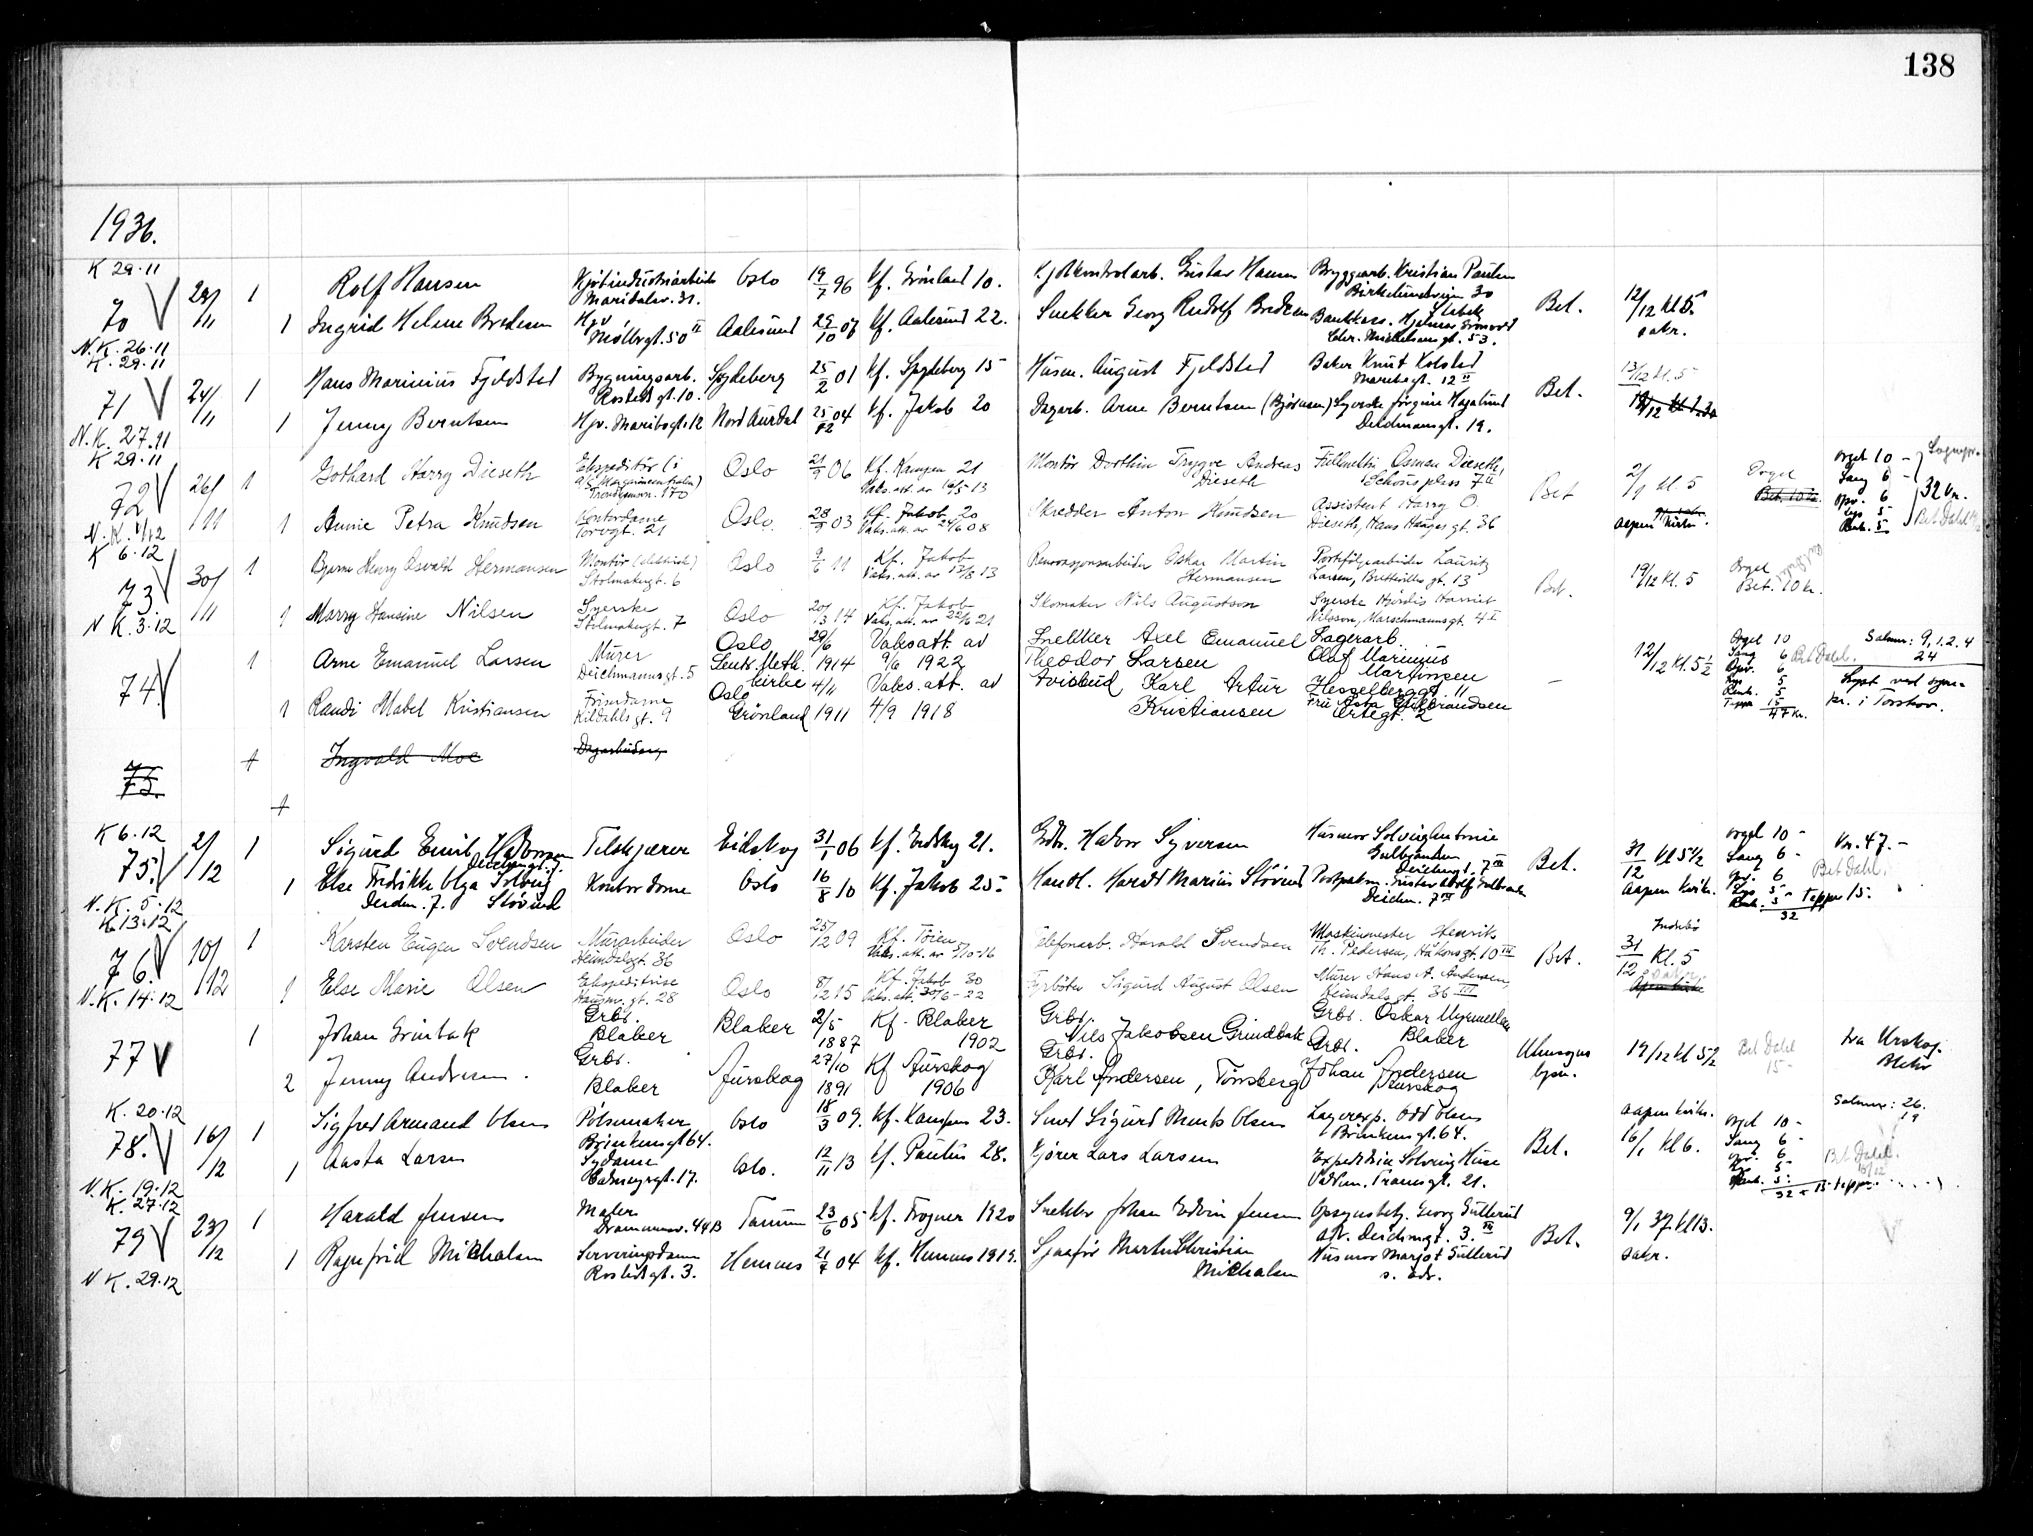 138
1936.
K 29.11
70 V 24/11 1 Rolf Hansen Kjötindustriarbeider Maridalsv. 31. Oslo 19/7 96 Kf. Grönland 10. Kjötkontrolarb. Gustav Hansen Bryggearb. Kristian Paulsen Birkelundveien 30 Stabek Bet. 12/12 kl 5. sakr.
1 Ingrid Helene Bredesen Hjv. Möllergt. 50 II Aalesund 29/10 07 Kf. Aalesund 22. Snekker Georg Rudolf Bredesen Bankkass. Hjalmar Chr. Michelsensgt. 53.
N.K. 26.11
K. 29.11
71 V 24/11 1 Hans Marinius Fjeldstad Bygningsarb. Rostedsgt. 10. Spydeberg 25/2 01 Kf. Spydeberg 15 Husm. August Fjeldstad Baker Knut Kolstad Maribogt. 12 II Bet. 13/12 kl. 5
1 Jenny Berntsen Hjv. Maribogt. 12 Nord Aurdal 25/12 04 Kf. Jakob 20 Dagarb. Arne Berntsen (Björnsen) Syerske Jörgine Hagelund Deichmansgt. 19.
N.K. 27.11
K 29.11
72 V 26/11 1 Gothard Harry Dieseth Ekspeditör (i A/S Margarincentralen) Trondhjemsv. 170 Oslo 21/9 06 Kf. Kampen 21 Vaks. att. av 16/5 13 Montör Dorthin Trygve Andreas Dieseth Fullmekt. Osman Dieseth, Schous plass 7 II Bet 2/1 kl. 5 Aapen kirke Orgel Bet. 10 kr. Orgel 10 - Sang 6 - Opv. 6 Lys 5 Renh. 5 32 kr. Bet Dahl
1 Annie Petra Knudsen Kontordame Torvgt. 21 Oslo. 28/9 03 Kf. Jakob 20 Vaks. att. av 24/6 08 Skredder Anton Knudsen Assistent Harry O. Dieseth, Hans Haugesgt. 36
N.K. 1/12
K 6.12
73 V 30/11 1 Bjarne Henry Osvald Hermansen Montör (elektrisk) Stolmakergt. 6 Oslo 9/6 11 Kf. Jakob Vaks. att. av 17/8 13 Renovasjonsarbeider Oskar Martin Hermansen Porteföljearbeider Lauritz Larsen, Bret­tevilles gt. 13 Bet. 19/12 kl. 5 Orgel Bet. 10 kr.
1 Marry Hansine Nilsen Syerske Stolmakergt. 7 Oslo 20/3 14 Kf. Jakob Vaks. att. av 22/6 21 Skomaker Nils Augustson Syerske Hjördis Harriet Nilsson, Marschmannsgt. 4 I
N K. 3.12
74 V 1 Arne Emanuel Larsen Murer Deichmannsgt. 5 Oslo Sentr. Meth. kirke 29/6 1914 Vaksatt. av 9/6 1922 Snekker Axel Emanuel Theodor Larsen Lagerarb. Olaf Marinius Martinsen Hesselberggt. 11 - 12/12 kl. 5 1/2 Orgel 10 Sang 6 Opv. 6 Lys 5 Renh. 5 Teppe 15 47 kr. Bet Dahl. Salmer: 9, 1. 2. 4 24
1 Randi Mabel Kristiansen Frisördame Kildahls gt. 9 Oslo Grönland 4/11 1911 Vaks. att. av 4/9 1918 Avisbud Karl Artur Kristiansen Fru Asta Gulbrandsen Ortegt. 2 Lyst ved sogne- pr. i Torshov.
75. + Ingvald Moe Dagarbeider
+
K 6.12
75. V 2/12 1 Sigurd Emil Deichmgt. 7 Tilskjærer Eidskog 31/1 06 Kf. Eidskog 21. Gdbr. Halvor Syversen Husmor Solveig Antonie Gulbrandsen Deichmgt. 7 III Bet. 31/12 kl 5 1/2 Aapen kirke. Orgel 10 - Sang 6 - Opv. 6 Lys 5 - Renh. 5 - 32 Teppe 15. Kr. 47. - Bet Dahl.
1 Else Fredrikke Olga Solveig Stövind Deichm. 7. Kontordame Oslo 16/8 10 Kf. Jakob 25. Handl. Harald Marius Stövind Postpakm. Gustav Adolf Gulbrandsen Deichm. 7 III
N.K. 5.12
K. 13.12
76. V 10/12 1 Karsten Eugen Svendsen Murarbeider Heimdalsgt. 36 Oslo 25/12 09 Kf. Töien Vaks. att. av 5/10-16 Telefonarb. Harald Svendsen Maskinmester Henrik Th. Pedersen, Håkonsgt. 10 III Bet. 31/12 Kl. 5
1 Else Marie Olsen Ekspeditrise Hausm. gt. 28 Oslo 8/12 15 Kf. Jakob 30 Vaks. att. 30/6-22 Fyrböter Sigurd August Olsen Murer Hans A. Andersen, Heimdals gt. 36 III
N.K. 14.12
77 V 1 Johan Grinbak Grbr. Blaker Blaker 2/5 1887 Kf. Blaker 1902 Grbr. Nils Jakobsen Grindbak Grbr. Oskar Myrmellen Blaker 19/12 kl 5 1/2 Bet Dahl 15 - fra Urskog. Blaker
2 Jenny Andersen. Grbr. Blaker Aurskog 27/10 1891 Kf Aurskog 1906 Grbr. Karl Andersen, Tønsberg Grbr. Johan Andersen Aurskog
K. 20.12
78. V 16/12 1 Sigfred Armand Olsen Pölsemaker Brinkensgt 64. Oslo 18/3 09. Kf. Kampen 23. Smed Sigurd Olsen Lagereksp. Odd Olsen Brinkensgt. 64. Bet. 16/1 kl 6. Aapen kirke. Orgel 10 - Sang 6 - Opv. 6 Lys 5 - Renh. 5. 32 + 15 teppe Bet Dahl. Salmer: 26. 19
1 Aasta Larsen Sydame Calmeyersgt. 17. Oslo. 12/11 13 Kf. Paulus 28. Kjörer Lars Larsen Expeditrise Solveig Huse Vad m. Tromsgt. 21.
N.K. 19.12
K. 27.12
79 V 23/12 1 Harald Jensen Maler Drammensv. 44 B Tanum 23/6 05 Kf. Frogner 1920 Snekker Johan Edvin Jensen Opsynsbetj. Georg Gullerud Deichmgt. 3. III Bet. 9/1 37 kl 13. sakr.
1 Ragnfrid Michalsen Serveringsdame Rostedsgt. 3. Hemnes 21/7 04 Kf. Hemnes 1919. Martin Kristian Michalsen Husmor Margot Gullerud s. adr.
N K. 29.12